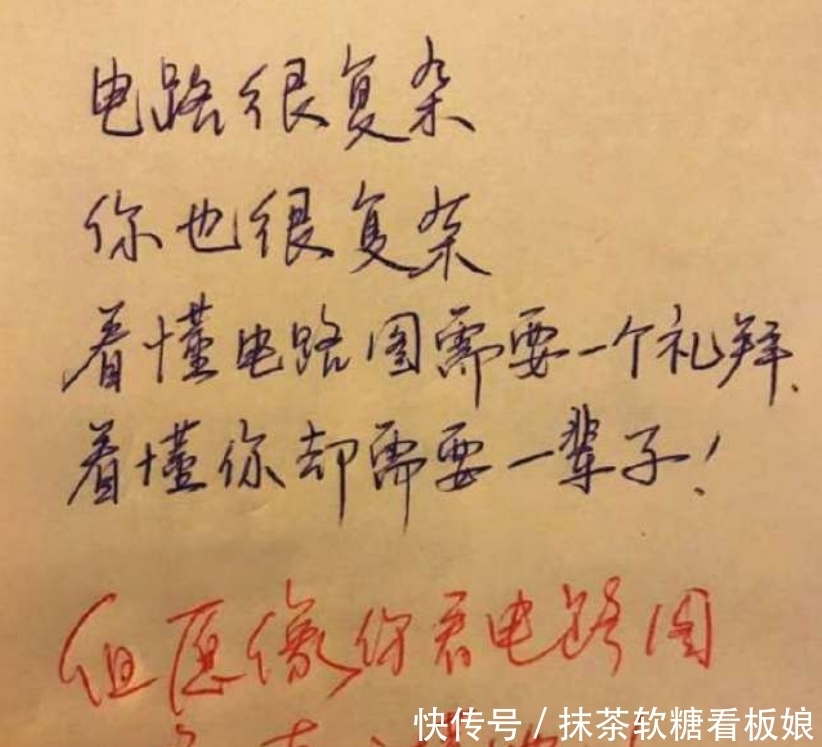 电路很复杂
你也很复杂
看懂电路图需要一个礼拜、
看懂你却需要一辈子！
但愿像你看电路图
快传号 / 抹茶软糖看板娘